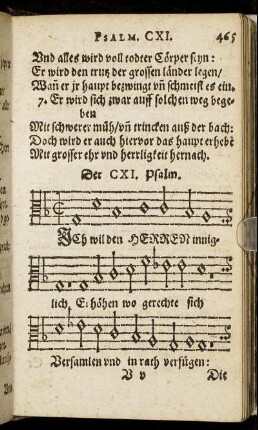 PSALM. CXI. 465
Vnd alles wird voll todter Cörper seyn:
Er wird den trutz der grossen länder legen/
Wañ er jr haupt bezwingt vñ schmeist es ein.
7. Er wird sich zwar auff solchen weg bege-
ben
Mit schwerer müh/vñ trincken auß der bach:
Doch wird er auch hiervor das haupt erhebē
Mit grosser ehr vnd herrligkeit hernach.
Der CXI. Psalm.
ICh wil den HERREN innig-
lich, Erhöhen wo gerechte sich
Versamlen vnd in rath verfügen:
V v Die